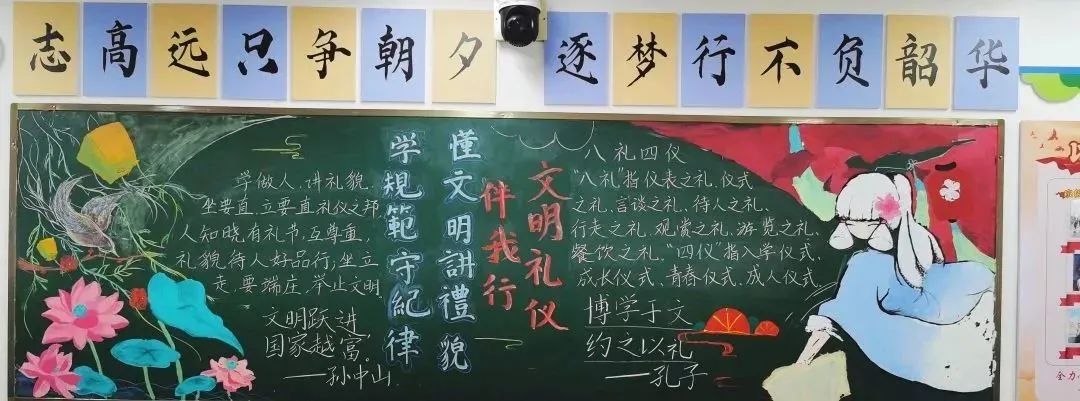 志高远只争朝夕
逐梦行不负韶华
学做人、讲礼貌，
坐要直、立要直礼仪之邦
人知晓，有礼节，互尊重，
礼貌待人好品行，坐立
走，要端庄，举止文明
文明跃进
国家越富。
——孙中山
懂文明讲禮貌
学規範守紀律
文明礼仪
伴我行
八礼四仪
“八礼”指仪表之礼、仪式
之礼、言谈之礼、待人之礼、
行走之礼、观赏之礼、游览之礼、
餐饮之礼、“四仪”指入学仪式、
成长仪式、青春仪式、成人仪式
博学于文
约之以礼
——孔子
全力